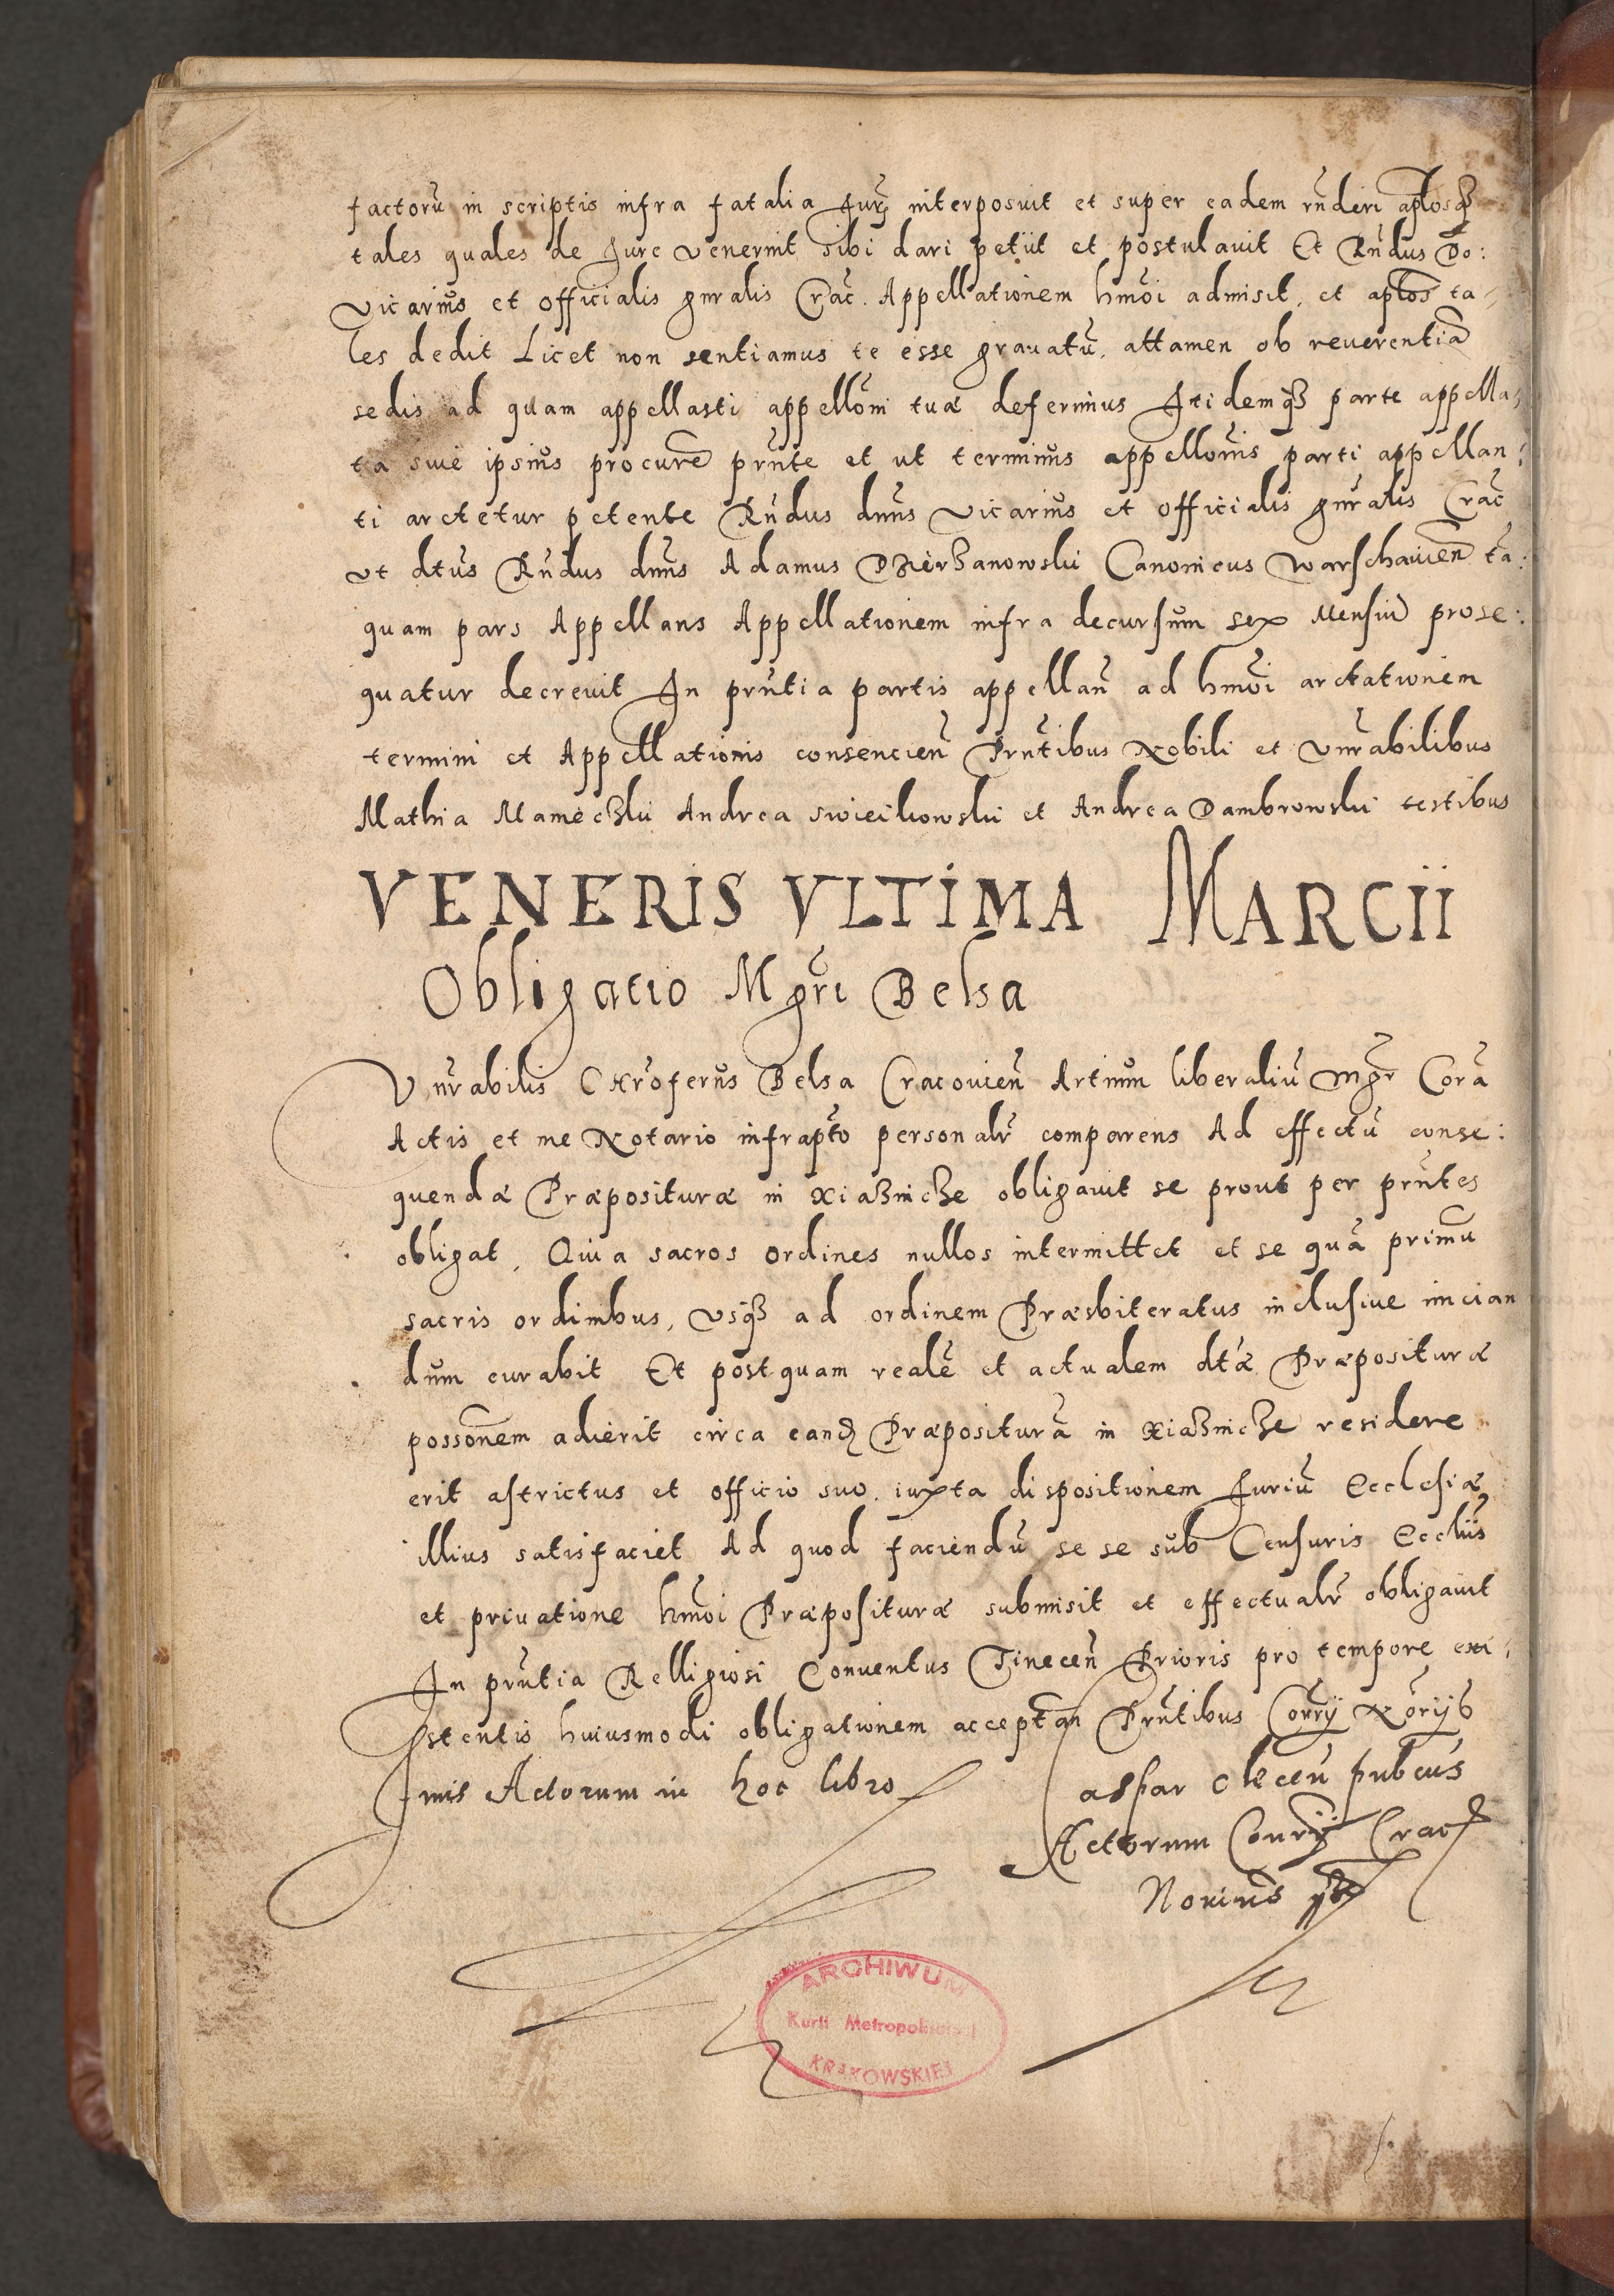 factorū in scriptis infra fatalia Jurę interposuit et super eadem rn̄deri apl̄osqȝ
tales quales de Jure venernit sibi dari petiit et postulavit Et Rn̄dus Do:
vicarius et officialis gn̄ralis Crac̄. Appellationem hmōi admisit, et apl̄os ta-
les dedit Licet non sentiamus te esse gravatū, attamen ob reverentiā
sedis ad quam appellasti appellōni tuæ deferimus Itidemqȝ parte appella-
ta sive ipsius procurē prn̄te et ut terminus appellōnis parti appellan:
ti arctetur petente Rn̄dus dnn̄s vicarius et officialis gn̄ralis Crac̄
vt dtūs Rn̄dus dnn̄s Adamus Dzierżanowski Canonicus Warschavien̄ tā:
quam pars Appellans Appellationem infra decursum sex Mensiū prose:
quatur decrevit In prn̄tia partis appellan̄ ad hmōi arctationem
termini et Appellationis consencien̄ Prn̄tibus Nobili et vnr̄abilibus
Mathia Mameczki Andrea Swieikowski et Andrea Dambrowski testibus
VENERIS VLTIMA MARCII
Obligatio Mgr̄i Belsa
Vnr̄abilis Cxr̄oferus Belsa Cracovien̄ Artium liberaliū Mgr̄ Corā
Actis et me Notario infrapt̄o personalr̄ comparens Ad effectū conse:
quendæ Præposituræ in Xiaznicze obligavit se prout per prn̄tes
obligat, Quia sacros ordines nullos intermittet et se quā primū
sacris ordinibus, vsqȝ ad ordinem Præsbiteratus inclusive inician
dum curabit Et postquam realē et actualem dtǣ Præposituræ
possōnem adierit circa eandę Præpositurā in Xiaznicze residere
erit astrictus et officio suo iuxta dispositionem Juriū Ecclesiæ
illius satisfaciet Ad quod faciendū se se sub Censuris Eccliīs
et privatione hmōi Præposituræ submisit et effectualr̄ obligavit
In prn̄tia Relligiosi Conventus Tinecen̄ Prioris pro tempore exi:
stentis huiusmodi obligationem acceptan̄ Prn̄tibus Con̄rij Nōrijs
Finis Actorum in hoc libro
Caspar Clecen̄ pub̄cus
Actorum Con̄rij Crac̄
Norius
ARCHIWUM
Kurii Metropolitalnej
KRAKOWSKIEJ